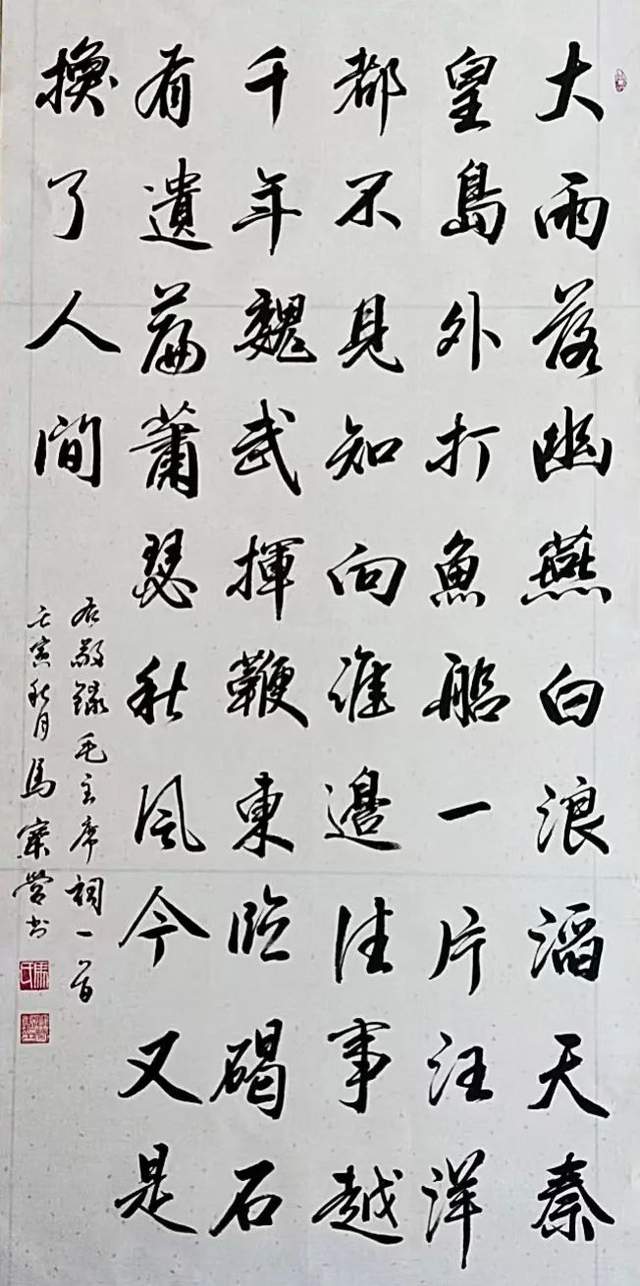 大雨落幽燕白浪滔天秦
皇島外打魚船一片汪洋
都不見知向誰邊往事越
千年魏武揮鞭東臨碣石
有遺篇蕭瑟秋風今又是
換了人間
右敬錄毛主席詞一首
壬寅秋月馬寨營书